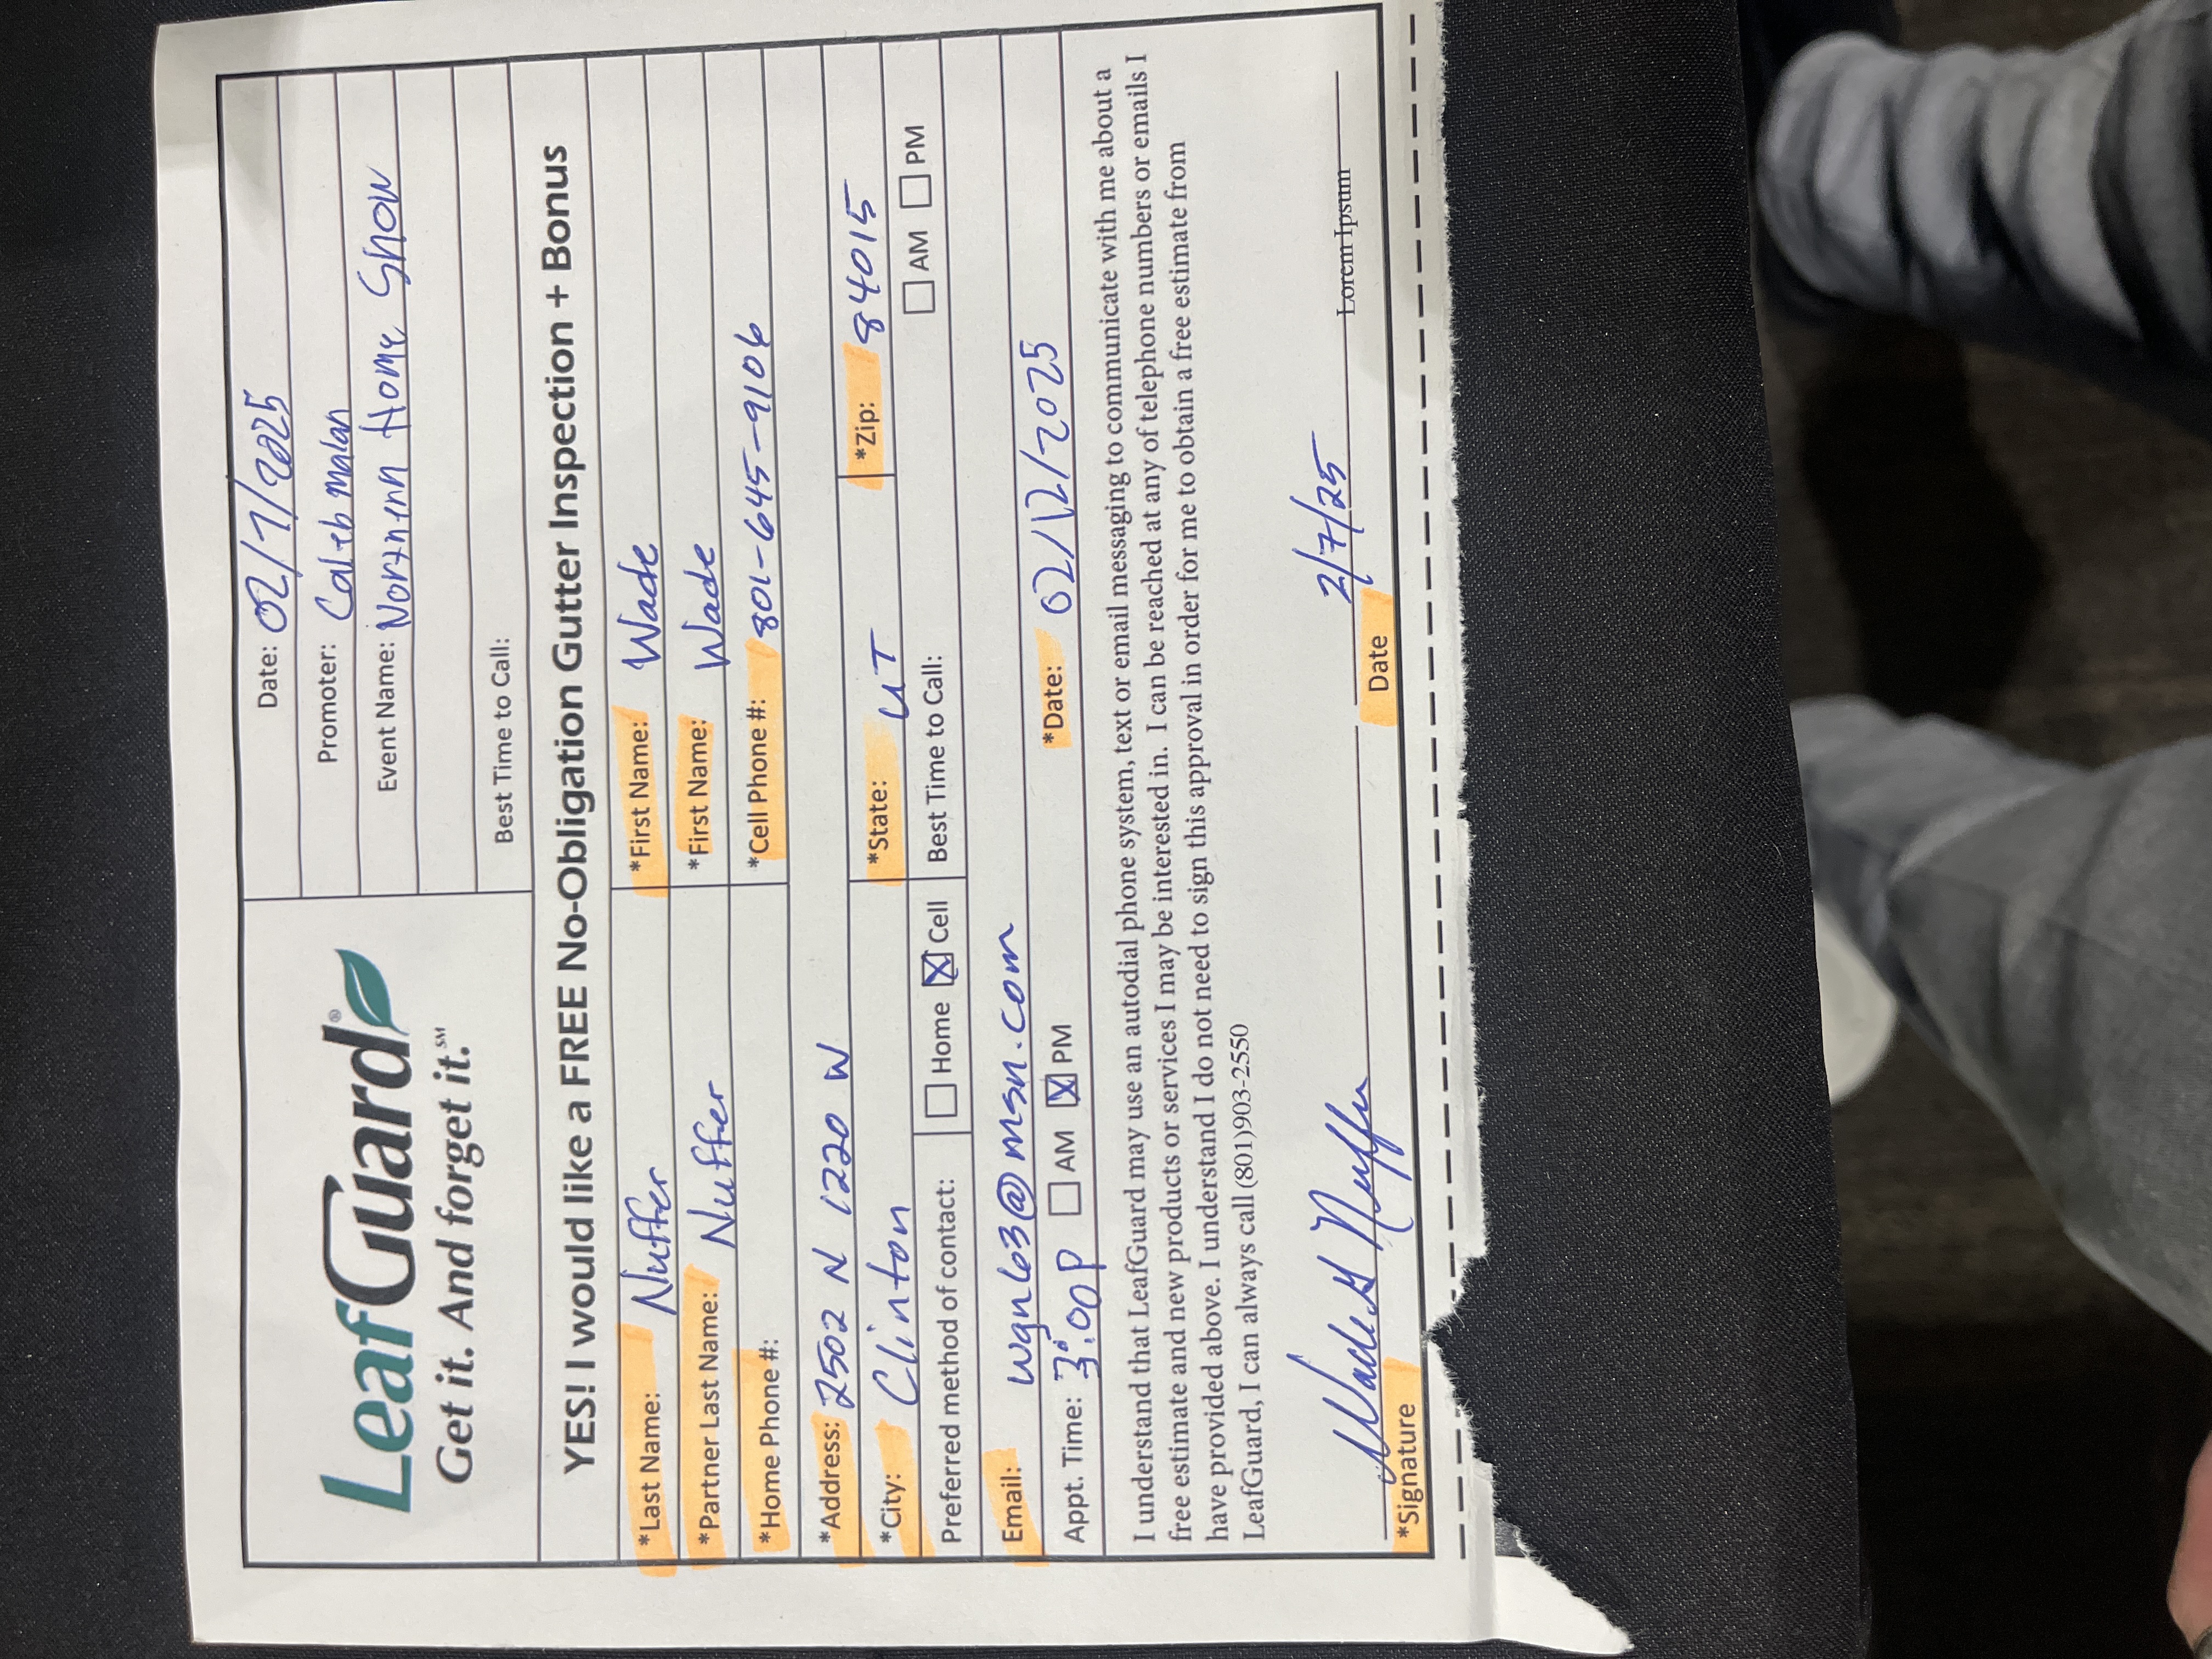 Date: 02/7/2025
Promoter: Caleb Malan
Event Name: Northern Home Show
LeafGuard®
Get it. And forget it.℠
Best Time to Call:
YES! I would like a FREE No-Obligation Gutter Inspection + Bonus
*Last Name: Nuffer *First Name: Wade
*Partner Last Name: Nuffer *First Name: Wade
*Home Phone #: *Cell Phone #: 801-645-9106
*Address: 2502 N 1220 W
*City: Clinton *State: UT *Zip: 84015
Preferred method of contact: Home Cell Best Time to Call: AM PM
Email: wgn63@msn.com
Appt. Time: 3:00p AM PM *Date: 02/12/2025
I understand that LeafGuard may use an autodial phone system, text or email messaging to communicate with me about a
free estimate and new products or services I may be interested in. I can be reached at any of telephone numbers or emails I
have provided above. I understand I do not need to sign this approval in order for me to obtain a free estimate from
LeafGuard, I can always call (801)903-2550
Wade G Nuffer 2/7/25 Lorem Ipsum
*Signature Date